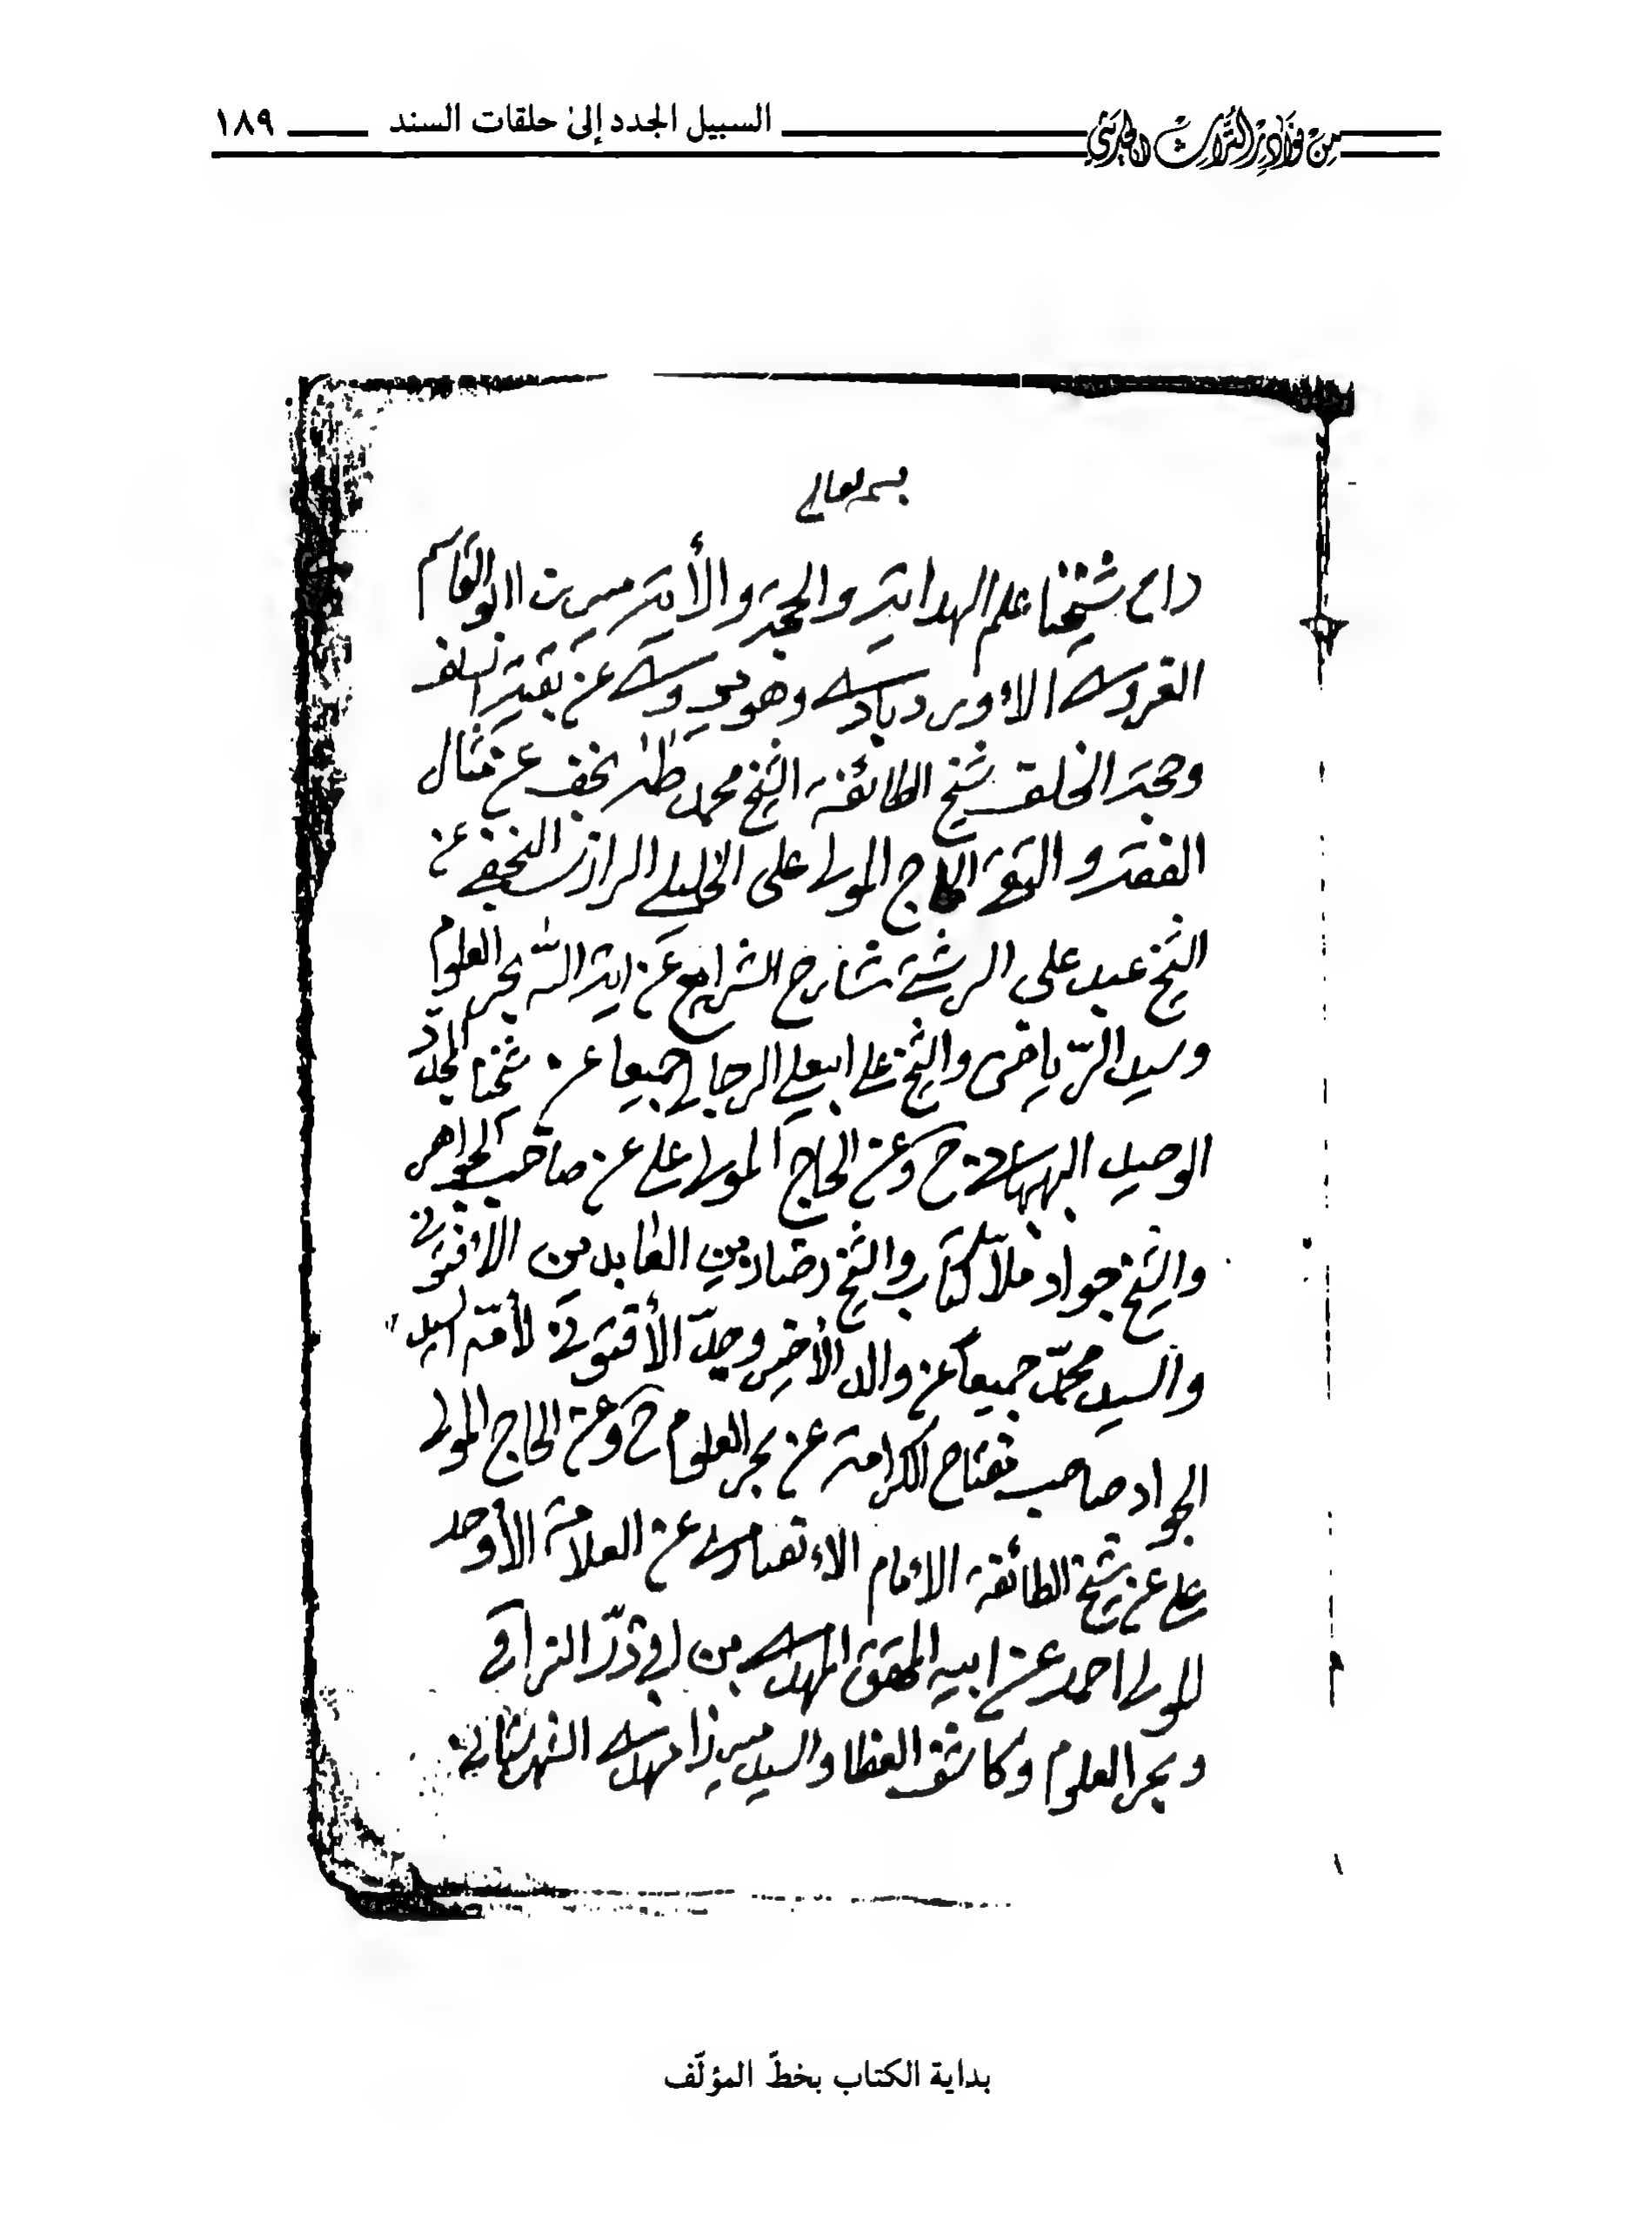 من نوادر التراث الحديثي
السبيل الجدد إلىٰ حلقات السند
١٨٩
بسمه تعالى
شيخنا علم الهداية والحجة والأية ميرزا ابوالقاسم
الاوردبادي وهو يروي عن بقية السلف
وحجة الخلف شيخ الطائفة الشيخ محمد طٰه نجف عن مثال
الفقه والتقى الحاج المولى على الخليلي الرازي النجفي عن
الشيخ عبد على الرشتي شارح الشرايع عن اية الله بحر العلوم
وسيد الرّياض والشيخ على جميعا عن شيخنا المجدّد
الوحيد البهبهاني ح وعن الحاج المولى على عن صاحب الجواهر
والشيخ جواد ملّا كتاب والشيخ رضا بن زين العابدين
والسيد محمّد جميعا عن والد الأخير وجدّ لأمّه السيد
الجواد صاحب مفتاح الكرامة عن بحر العلوم ح وعن الحاج المولى
على عن شيخ الطائفة الامام الانصاري عن العلامة الأوحد
المولى احمد عن ابيه المحقق المهدي بن ابي ذرّ النراقي
وبحر العلوم وكاشف الغطا والسيد ميرزا مهدي الشهرستاني
بداية الكتاب بخطّ المؤلّف